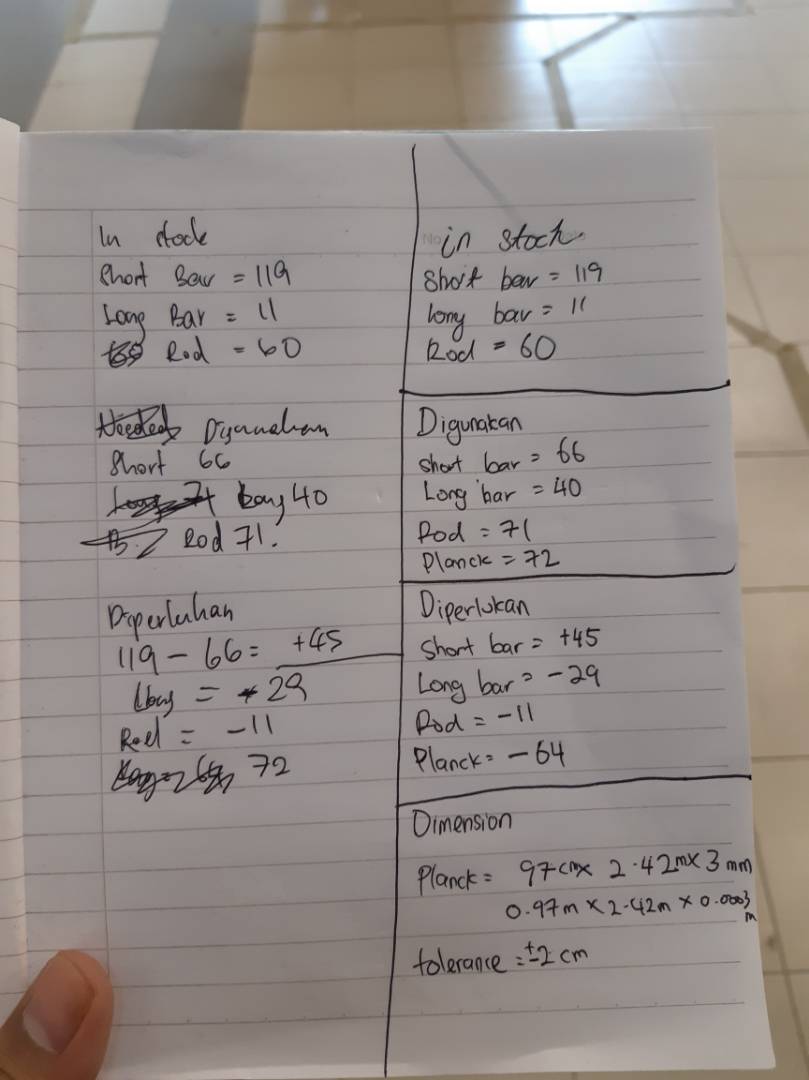 In stock
Short Bar = 119
Long Bar = 11
Rod = 60
Needed Digunakan
Short 66
Long 40
Rod 71.
Diperlukan
119 - 66 = +45
Long = -29
Rod = -11
72
in stock
Short bar = 119
long bar = 11
Rod = 60
Digunakan
short bar = 66
Long bar = 40
Rod = 71
Planck = 72
Diperlukan
Short bar = +45
Long bar = -29
Rod = -11
Planck = -64
Dimension
Planck = 97cm x 2.42m x 3mm
0.97m x 2.42m x 0.0003
m
tolerance = ±2cm